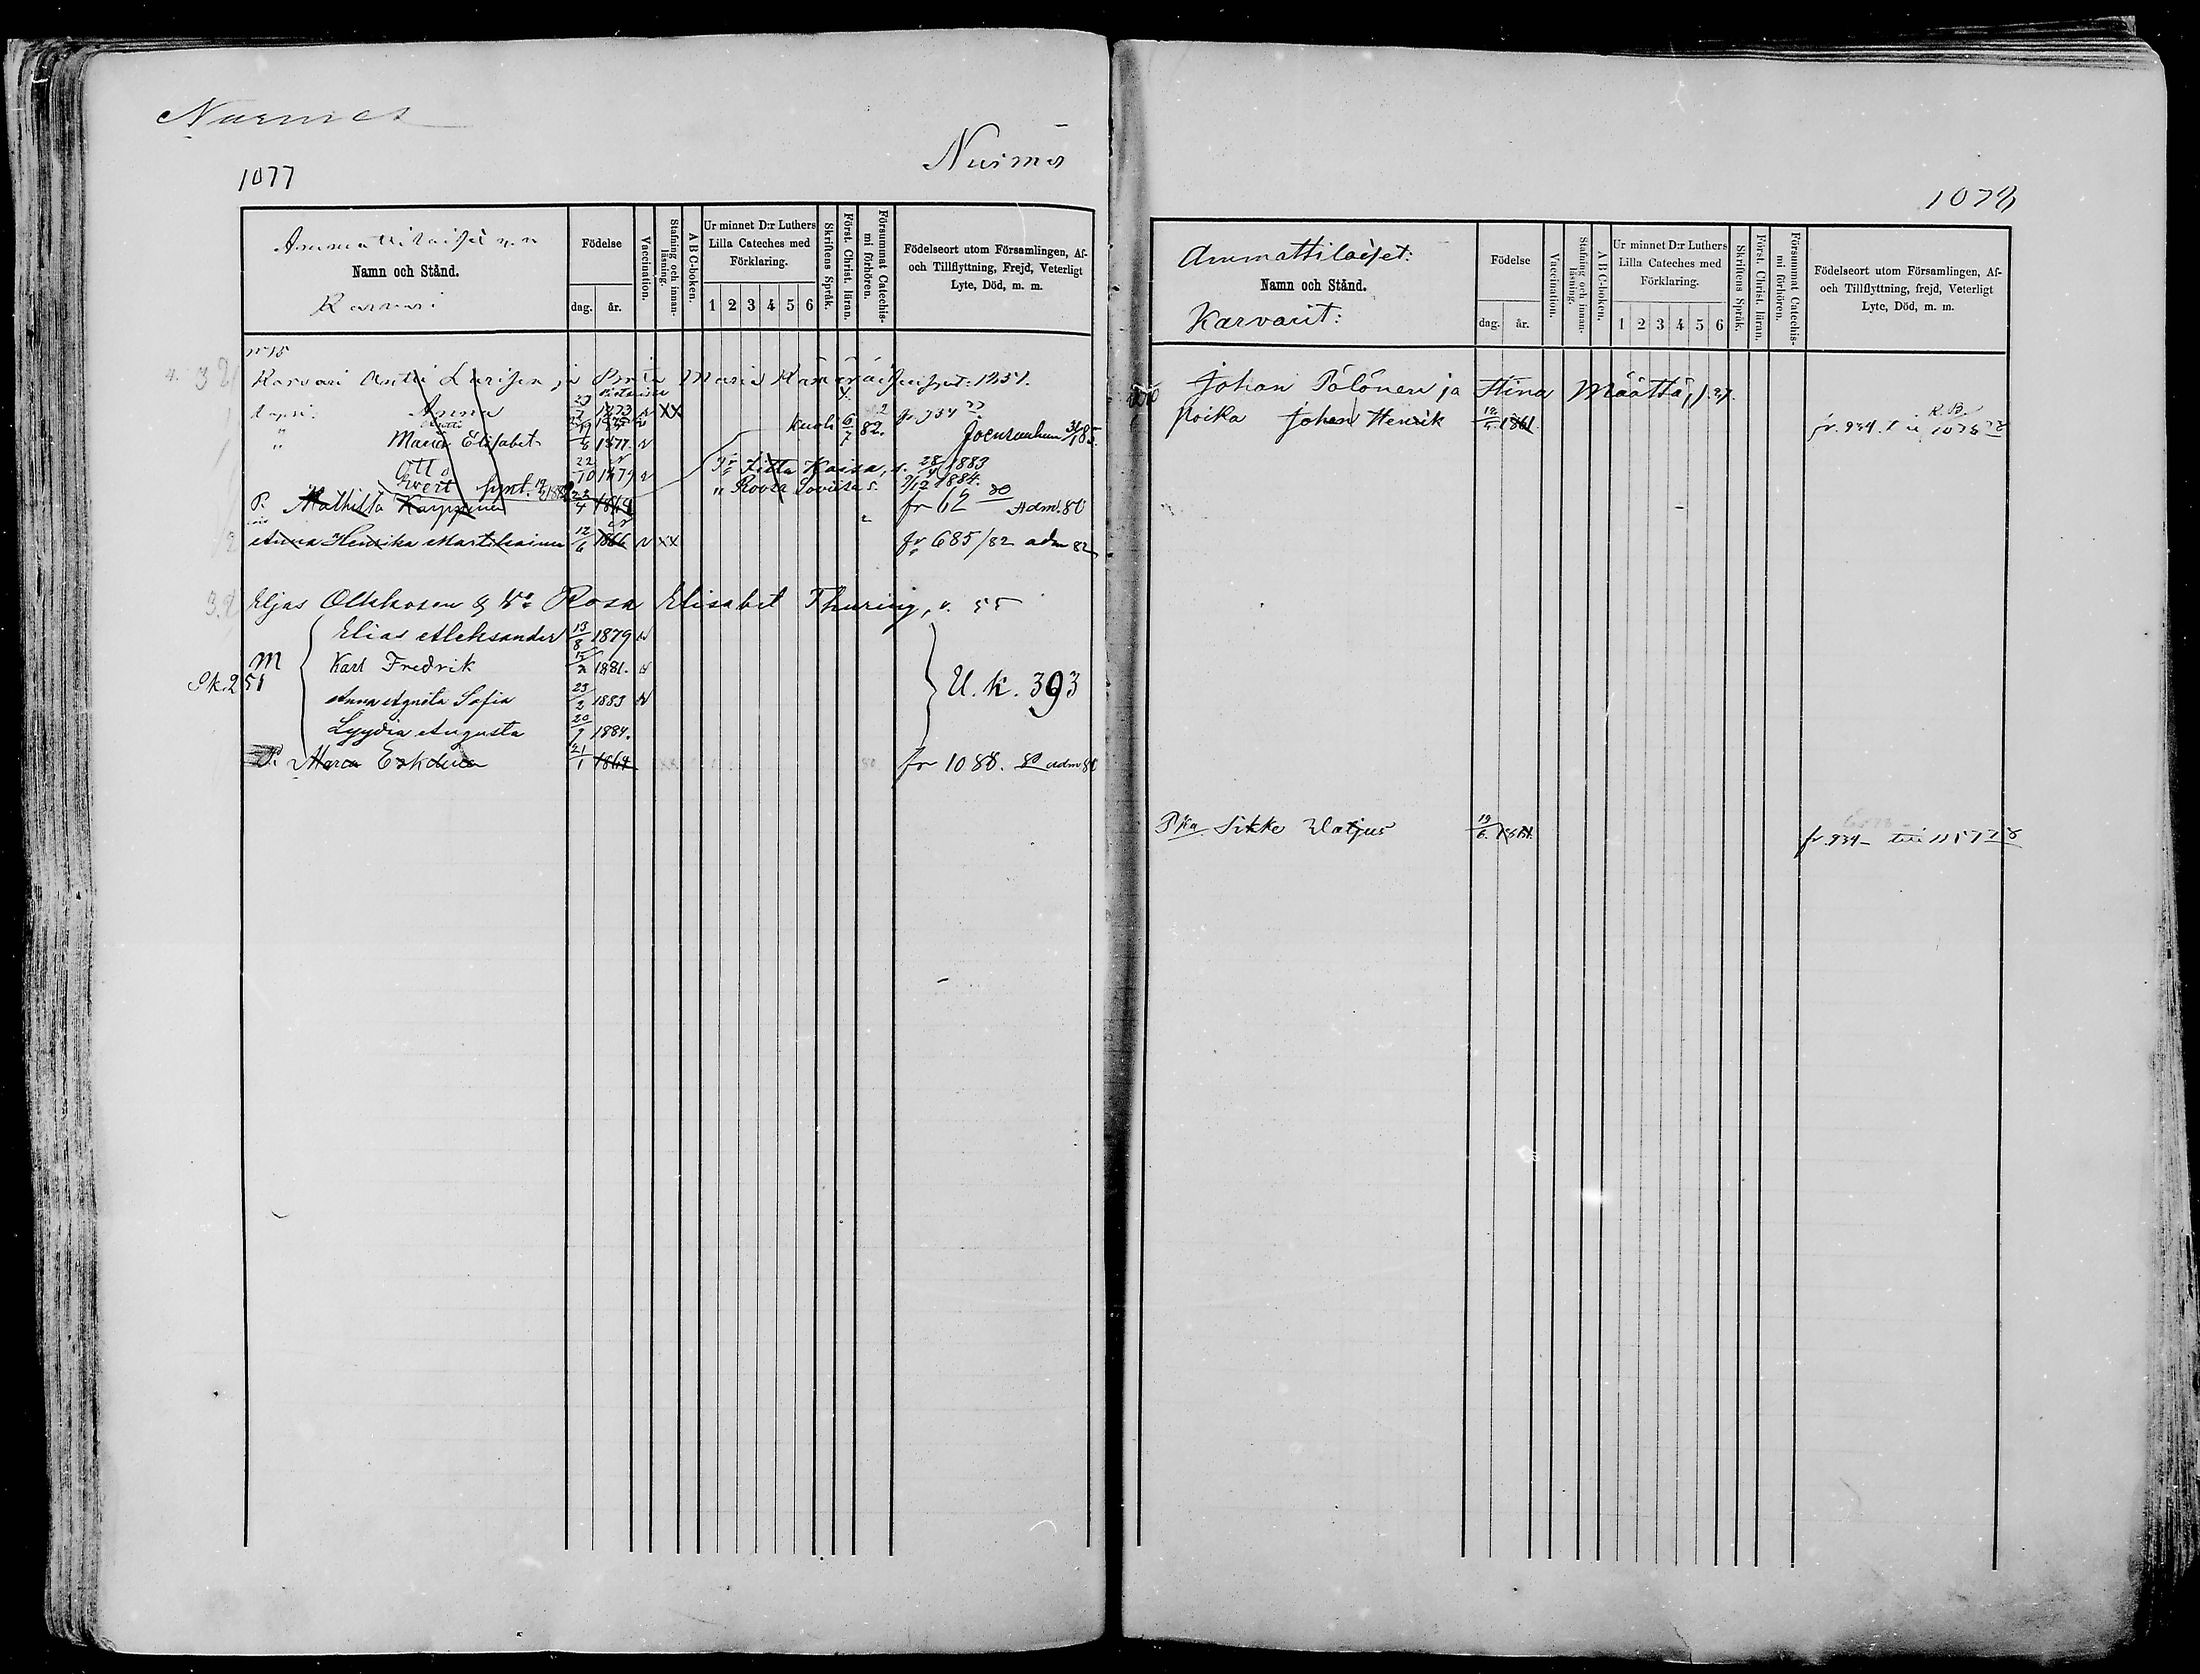 Nurmes
Nurmes
1077
Ammattilaiset
Namn och Stånd.
Karvari
Födelse
dag. år.
Vaccination.
Stafning och innan-läsning.
ABC-boken.
Ur minnet D:r Luthers
Lilla Cateches med
Förklaring.
1 2 3 4 5 6
Skriftens Språk.
Först. Christ. läran.
Försummat Catechis-mi förhören.
Födelseort utom Församlingen, Af-
och Tillflyttning, Frejd, Veterligt
Lyte, Död, m. m.
N:o 15
Karvari Antti Larisen ja Maria
Lapsi. Anna 1873 v xx fr 934
" Maria Elisabet 1877. v kuoli 6/7 82. Joensuuhun
Otto 22/10 1879 v T:r Kaisa, s. 28/4 1883
Evert " Rosa Loviisa s. 9/12 1884.
P. Mathilda Karppinen 23/4 fr 62 80 Adm. 80
Anna Henrika Martikainen 12/6 1866 v xx fr 685/82 adm 82
Eljas Olkkosen & V:o Rosa Elisabet Thuring, v. 55
Elias Aleksander 13/8 1879 v
M Karl Fredrik 1881. v
Sk. 251 U.k. 393
Anna Agneta Sofia 23/2 1883 v
Lyydia Augusta 20/9 1884.
P. Maria Eskelinen 21/1 1864 fr 1088. 80 adm 80
1078
Ammattilaiset:
Namn och Stånd.
Karvarit:
Födelse
dag. år.
Vaccination.
Stafning och innan-läsning.
ABC-boken.
Ur minnet D:r Luthers
Lilla Cateches med
Förklaring.
1 2 3 4 5 6
Skriftens Språk.
Först. Christ. läran.
Försummat Catechis-mi förhören.
Födelseort utom Församlingen, Af-
och Tillflyttning, frejd, Veterligt
Lyte, Död, m. m.
Johan Pölönen ja Stina Määttä, s. 27.
R. B.
poika Johan Henrik 1861. fr. 934.
P:ka Sikke Watjus 19/6 fr. 934